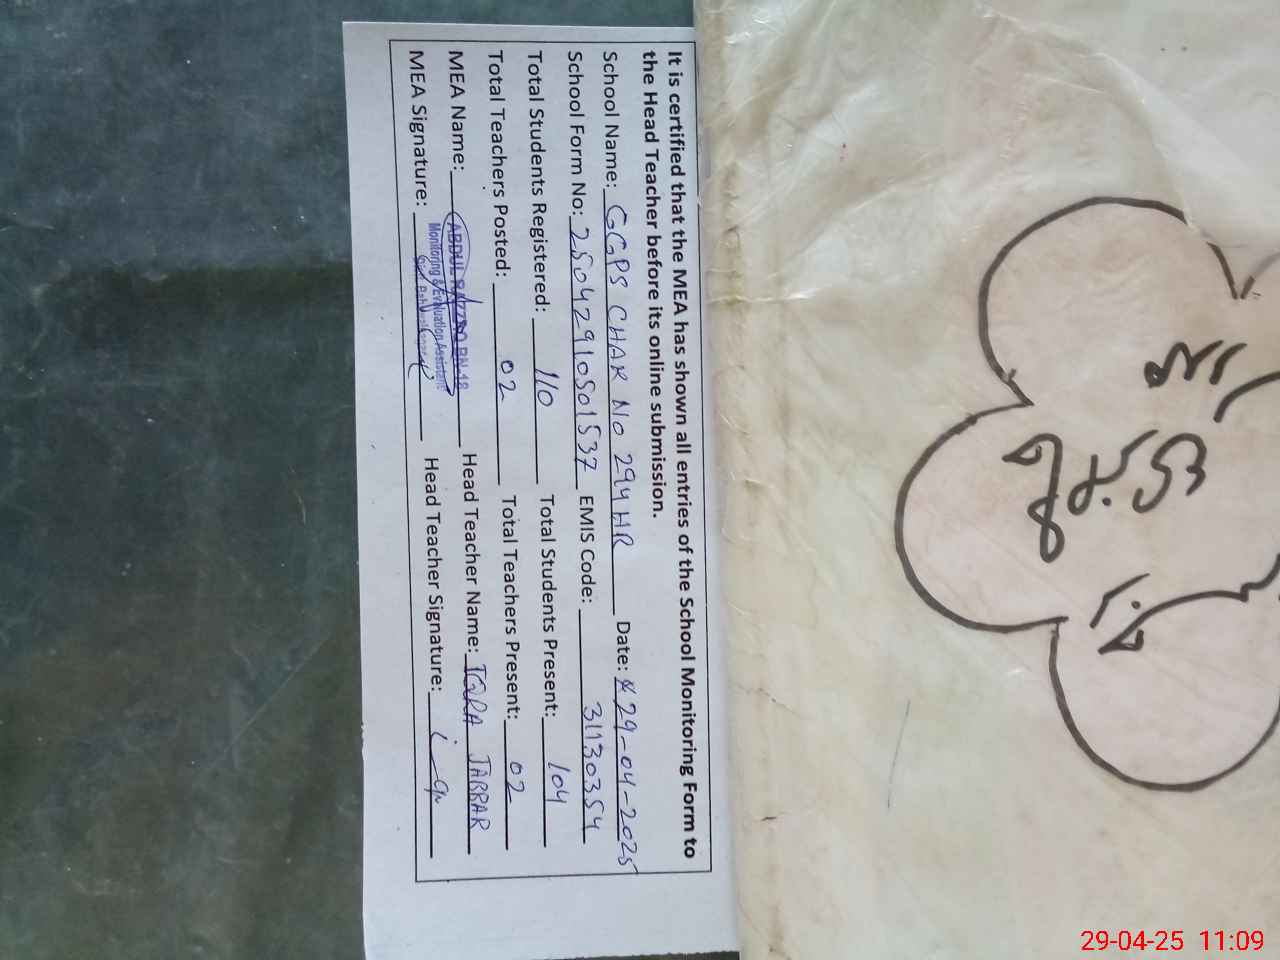 It is certified that the MEA has shown all entries of the School Monitoring Form to
the Head Teacher before its online submission.
School Name: GGPS CHAK NO 294 HR Date: 29-04-2025
School Form No: 25042910501537 EMIS Code: 31130354
Total Students Registered: 110 Total Students Present: 104
Total Teachers Posted: 02 Total Teachers Present: 02
MEA Name: ABDUL RAZZAQ BN-48 Head Teacher Name: IQRA JABBAR
Monitoring & Evaluation Assistant
MEA Signature: Head Teacher Signature:
29-04-25 11:09